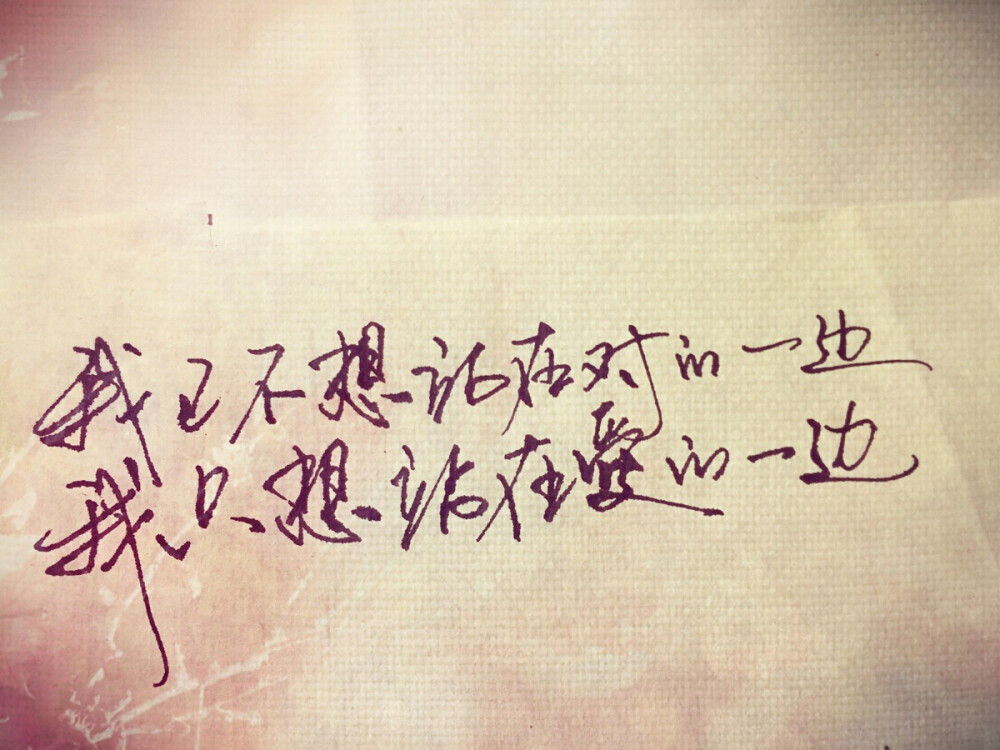 我已不想站在对的一边
我只想站在愛的一边